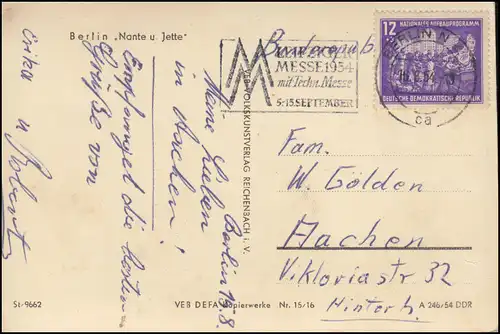 Berlin „Nante u. Jette"
Berlin 15.8.
Meine Lieben
in Aachen!
Empfanget die besten
Grüße von
Erika
u Robert
St-9662
VEB DEFA Kopierwerke Nr. 15/16 A 246/54 DDR
VEB VOLKSKUNSTVERLAG REICHENBACH i. V.
MM
LEIPZIGER
MESSE 1954
mit Techn. Messe
5.-15. SEPTEMBER
BERLIN N
ca
12 NATIONALES AUFBAUPROGRAMM
DEUTSCHE DEMOKRATISCHE REPUBLIK
Bundesrepub.
Fam.
W. Gölden
Aachen
Viktoriastr 32
Hinterh.